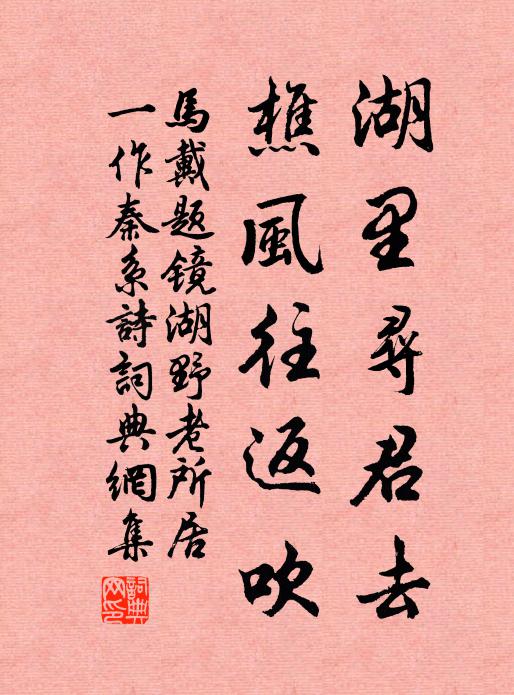 湖里尋君去
樵風往返吹
馬戴题镜湖野老所居
一作秦系詩詞典網集